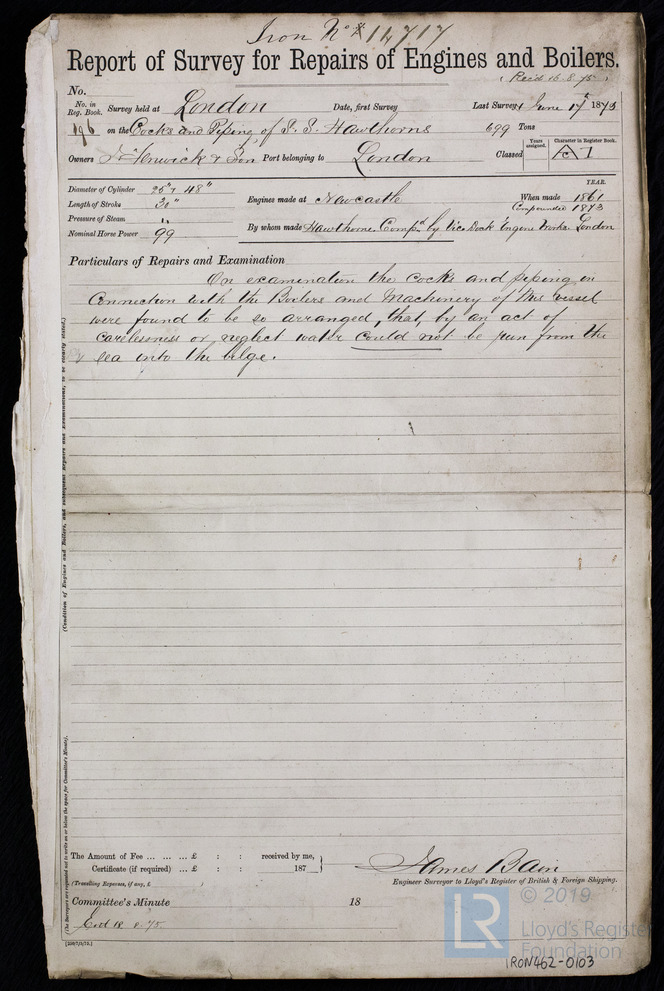 Iron No 14717
Report of Survey for Repairs of Engines and Boilers.
(Recd 16.8.75)
No.
No. in Reg. Book. Survey held at London Date, first Survey Last Survey June 17th 1875
196 on the Cocks and Piping of S.S. Hawthorns 699 Tons
Owners J. Fenwick & Son Port belonging to London Classed Years assigned. Character in Register Book. A 1
Diameter of Cylinder 25" & 48"
Length of Stroke 31"
Pressure of Steam "
Nominal Horse Power 99
Engines made at Newcastle When made YEAR. 1861
Compounded 1873
By whom made Hawthorne. Compd by Vic. Dock Engine Works London
Particulars of Repairs and Examination
On examination the cocks and piping in
Connection with the Boilers and Machinery of this vessel
were found to be so arranged, that by an act of
carelessness or neglect water could not be run from the
sea into the bilge.
(Condition of Engines and Boilers, and subsequent Repairs and Examinations, to be clearly stated.)
(The Surveyors are requested not to write on or below the space for Committee's Minute).
The Amount of Fee ... ... ... £ : : received by me,
Certificate (if required) ... £ : : 187
(Travelling Expenses, if any, £ )
James Bain
Engineer Surveyor to Lloyd's Register of British & Foreign Shipping.
Committee's Minute 18
18.8.75
© 2019
LR
Lloyd's Register
Foundation
IRON462-0103